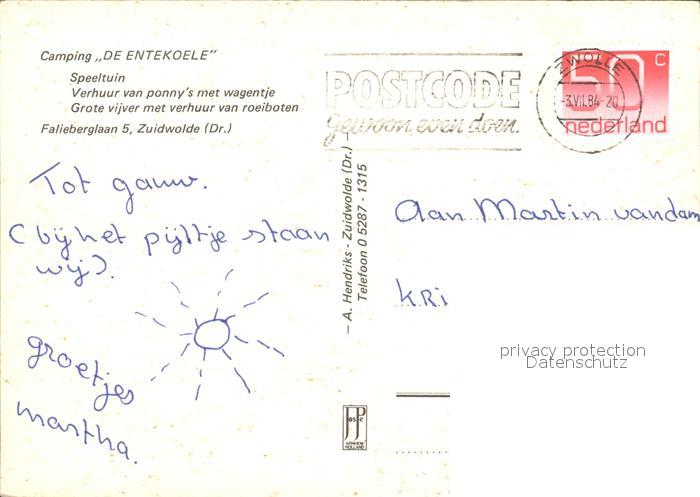 Camping „DE ENTEKOELE"
Speeltuin
Verhuur van ponny's met wagentje
Grote vijver met verhuur van roeiboten
Falieberglaan 5, Zuidwolde (Dr.)
POSTCODE
gewoon even doen.
ZWOLLE
-3.VII.84-20
50 C
nederland
Tot gauw.
(bij het pijltje staan
wij).
groetjes
martha.
– A. Hendriks - Zuidwolde (Dr.) –
Telefoon 0 5287 - 1315
Aan Martin vandam
KRI
privacy protection
Datenschutz
JosPé
ARNHEM
HOLLAND